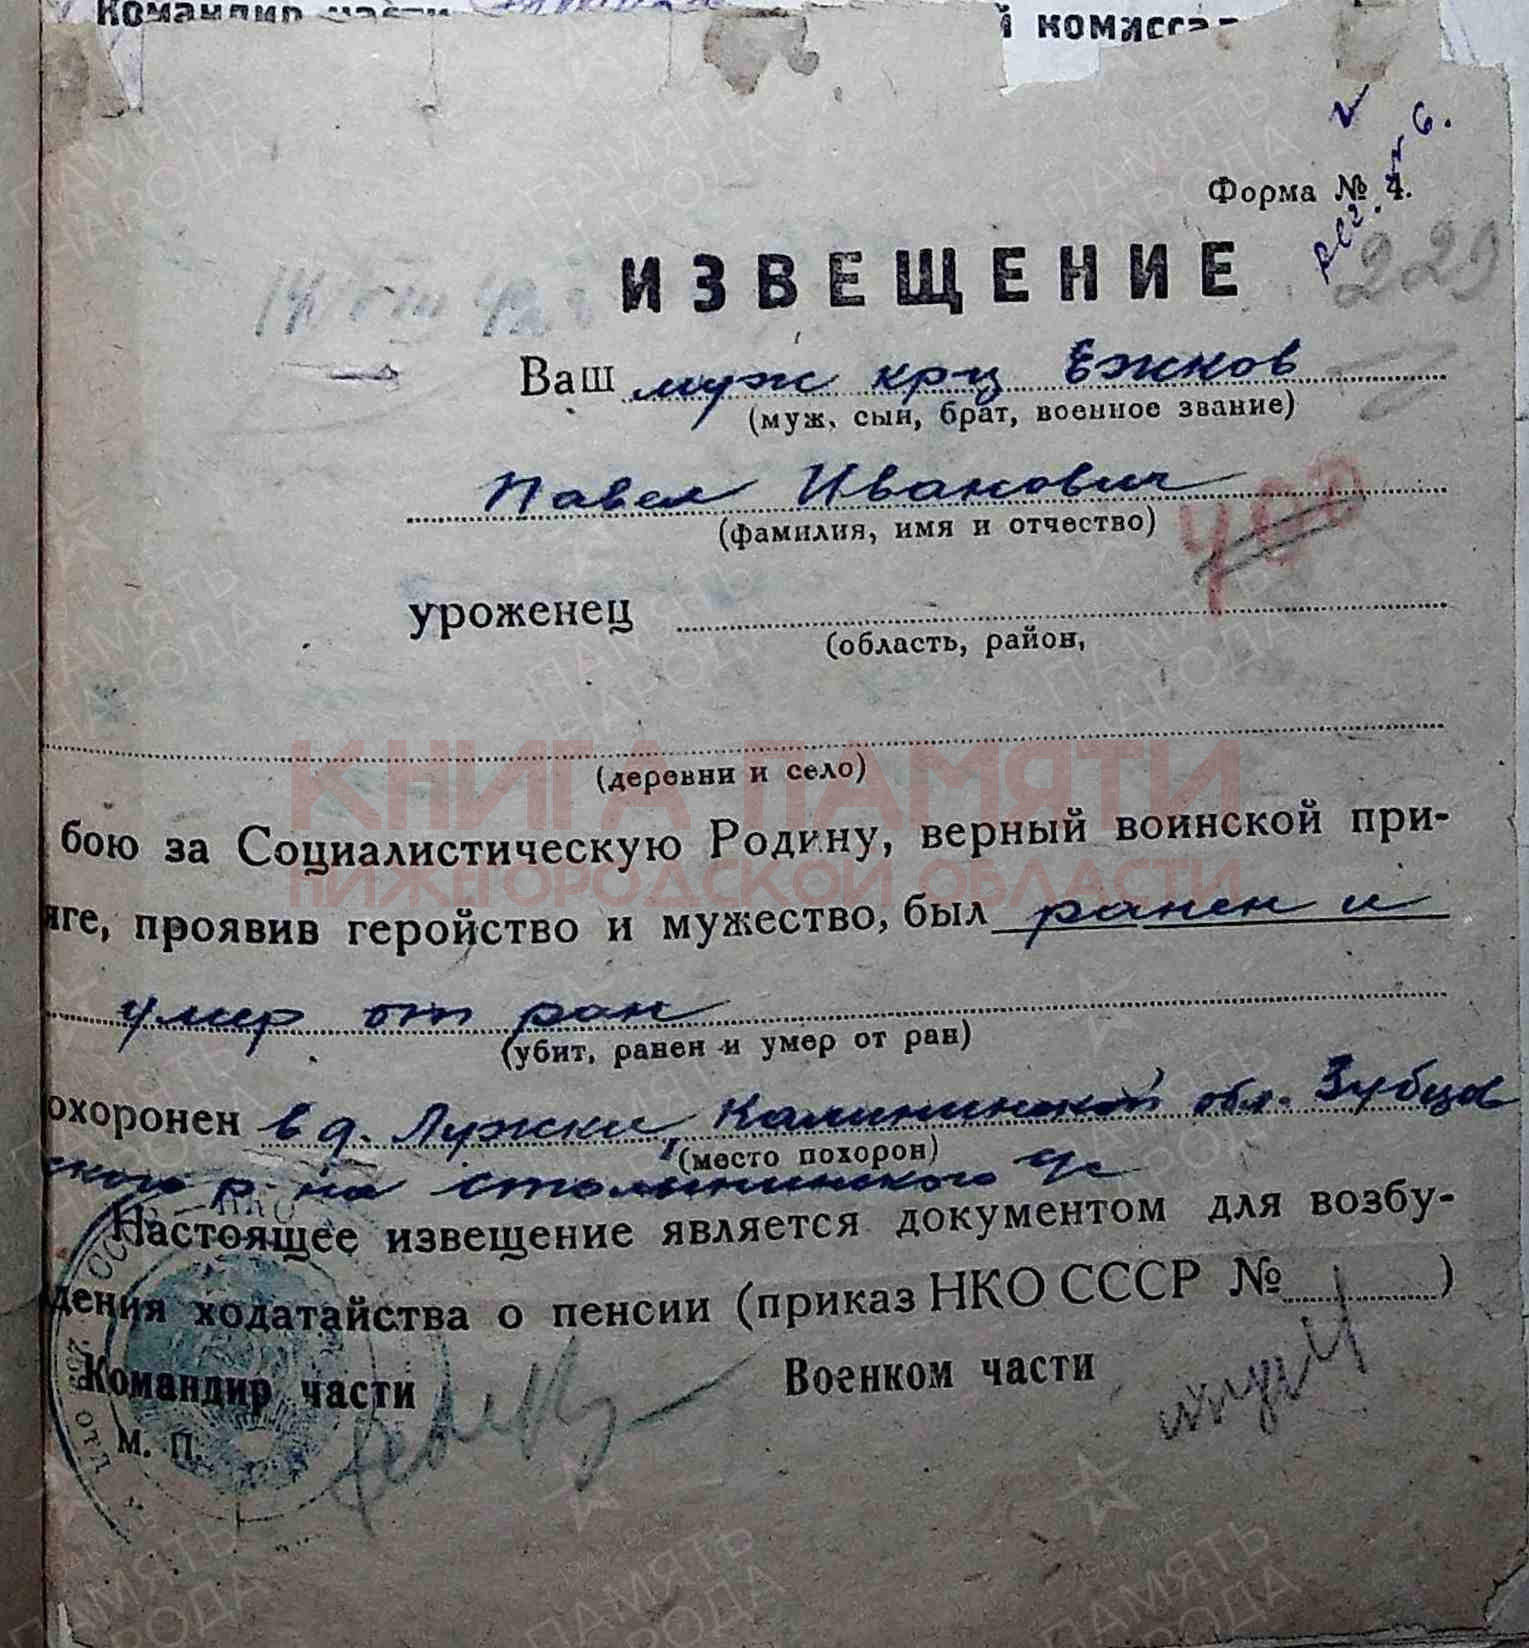 Командир части
й комисса
Форма № 4.
рег.
229
ИЗВЕЩЕНИЕ
Ваш муж крц Ежков
(муж, сын, брат, военное звание)
Павел Иванович
(фамилия, имя и отчество)
уроженец
(область, район,
(деревни и село)
КНИГА ПАМЯТИ
НИЖЕГОРОДСКОЙ ОБЛАСТИ
бою за Социалистическую Родину, верный воинской при-
яге, проявив геройство и мужество, был ранен и
умер от ран
(убит, ранен и умер от ран)
охоронен в д. Лужки, Калининской обл. Зубцов
(место похорон)
ского р-на
Настоящее извещение является документом для возбу-
дения ходатайства о пенсии (приказ НКО СССР № )
Командир части Военком части
М. П.
ПАМЯТЬ
НАРОДА